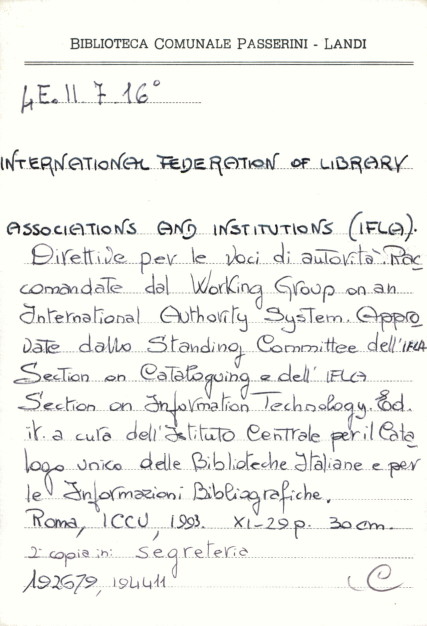 BIBLIOTECA COMUNALE PASSERINI - LANDI
4E.II.7.16°
INTERNATIONAL FEDERATION OF LIBRARY
ASSOCIATIONS AND INSTITUTIONS (IFLA).
Direttive per le voci di autorità. Rac
comandate dal Working Group on an
International Authority System. Appro
vate dallo Standing Committee dell'IFLA
Section on Cataloguing e dell' IFLA
Section on Information Technology. Ed.
it. a cura dell'Istituto Centrale per il Cata
logo unico delle Biblioteche Italiane e per
le Informazioni Bibliografiche.
Roma, ICCU, 1993. XI-29 p. 30 cm.
2ª copia in: segreteria
192679, 194411
C